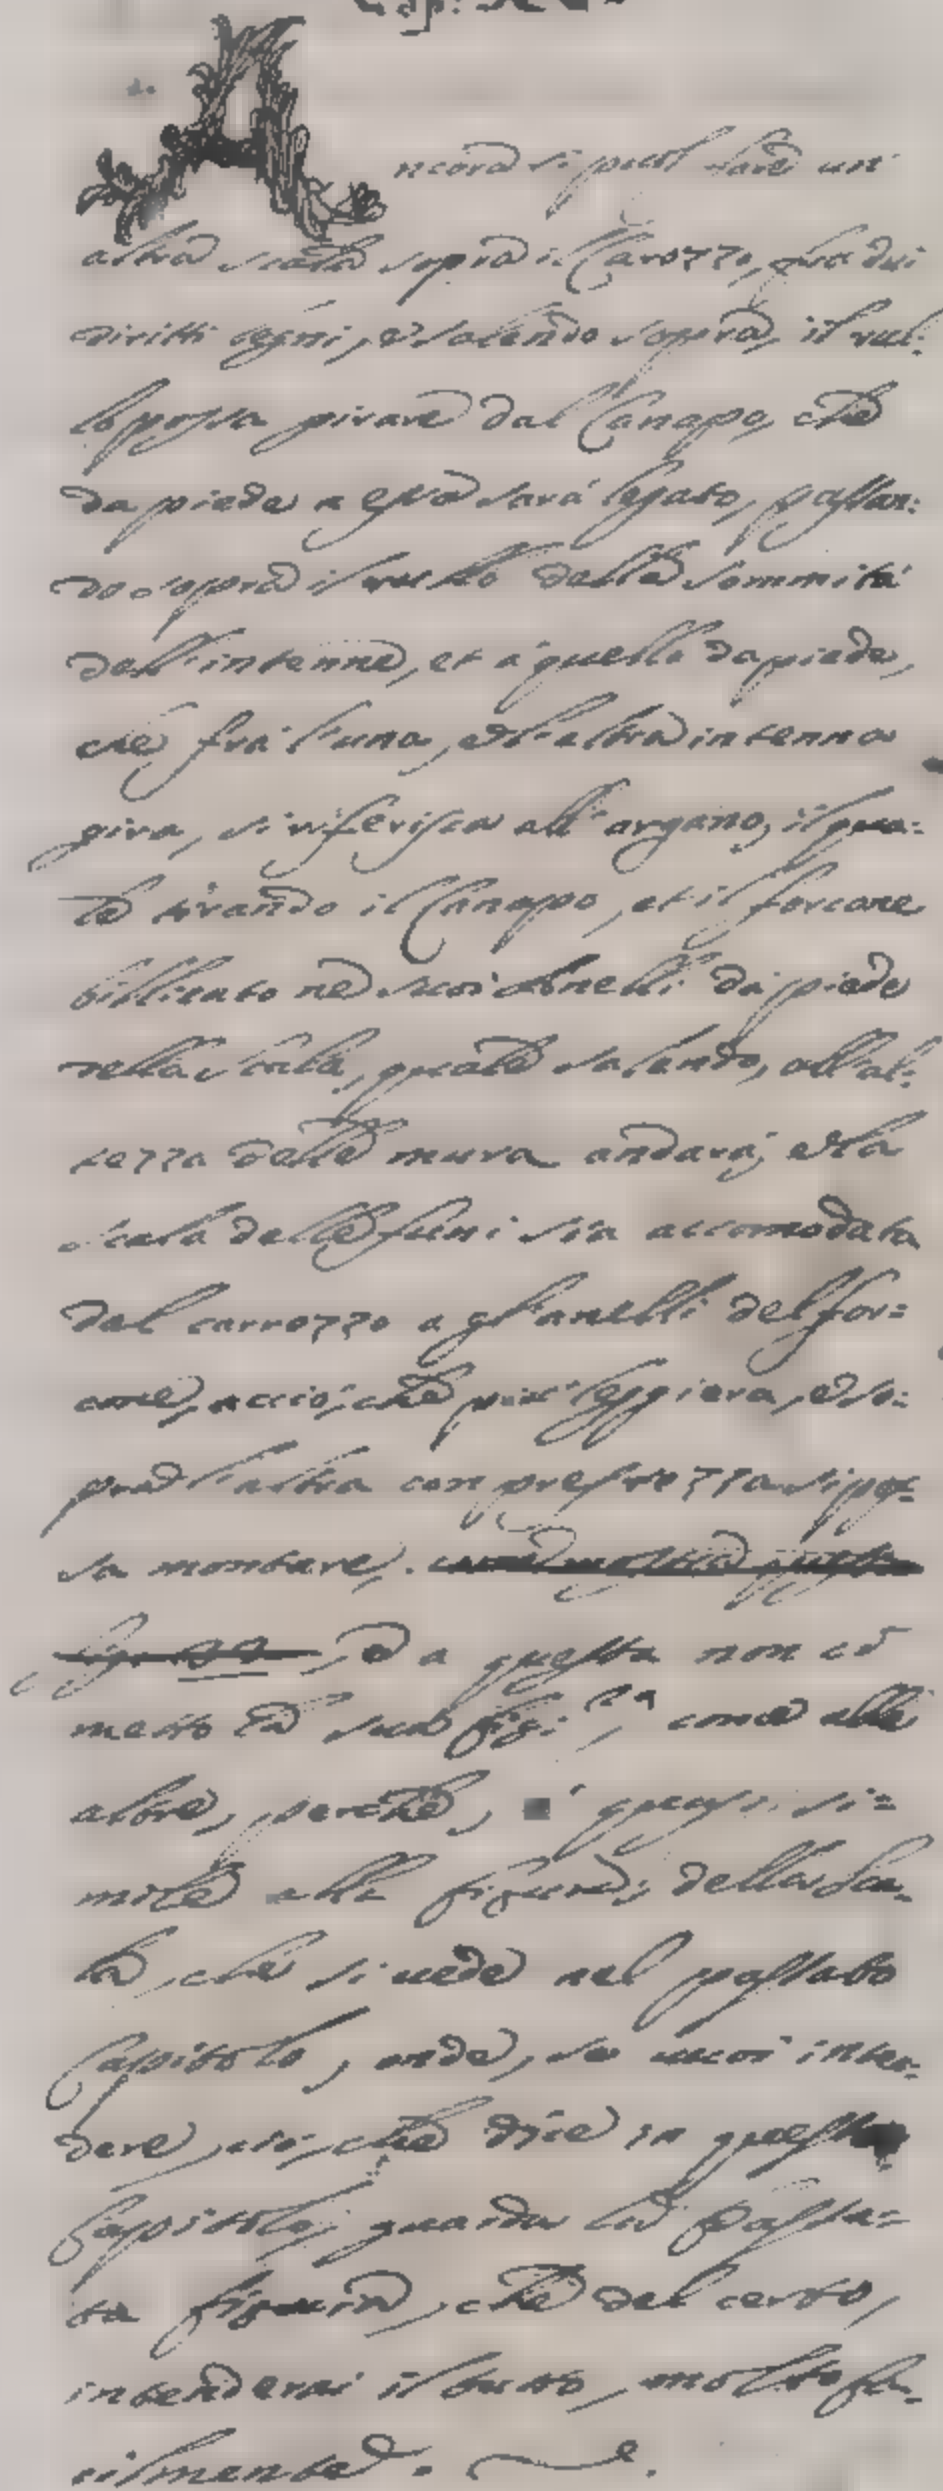 Ancora si puol fare un
altra scala sopra il Carozzo, fra dui
diritti legni, e salendo sopra, il rul:
lo possa pirare dal Canapo, che
da piede a essa sará legato, passan:
do sopra il rullo della sommitá
dell'intenne, et á quello da piede,
che frá l'una, e l'altra intenna
gira, si riferisca all'argano, il qua:
le tirando il Canapo, et il forcone
billicato ne suoi Anelli da piede
della Scala, quale salendo, all'al:
tezza delle mura andará; e la
scala delle funi sia accomodata
dal carrozzo a gl'anelli del for=
cone, acció, che piu leggiera, e so:
pra l'altra con prestezza si pos=
sa montare. come mostra questa
fig: , e a questa non ci
metto la sua fig:ra, come alle
altre, perche, é quasi si=
mile alla figura, della Sca,
la, che si uede nel passato
Capitolo, onde, se uuoi inten,
dere, ció, che dice in questo
Capitolo, guarda la passa=
ta figura, che del certo,
intenderai il tutto, molto fa,
cilmente.